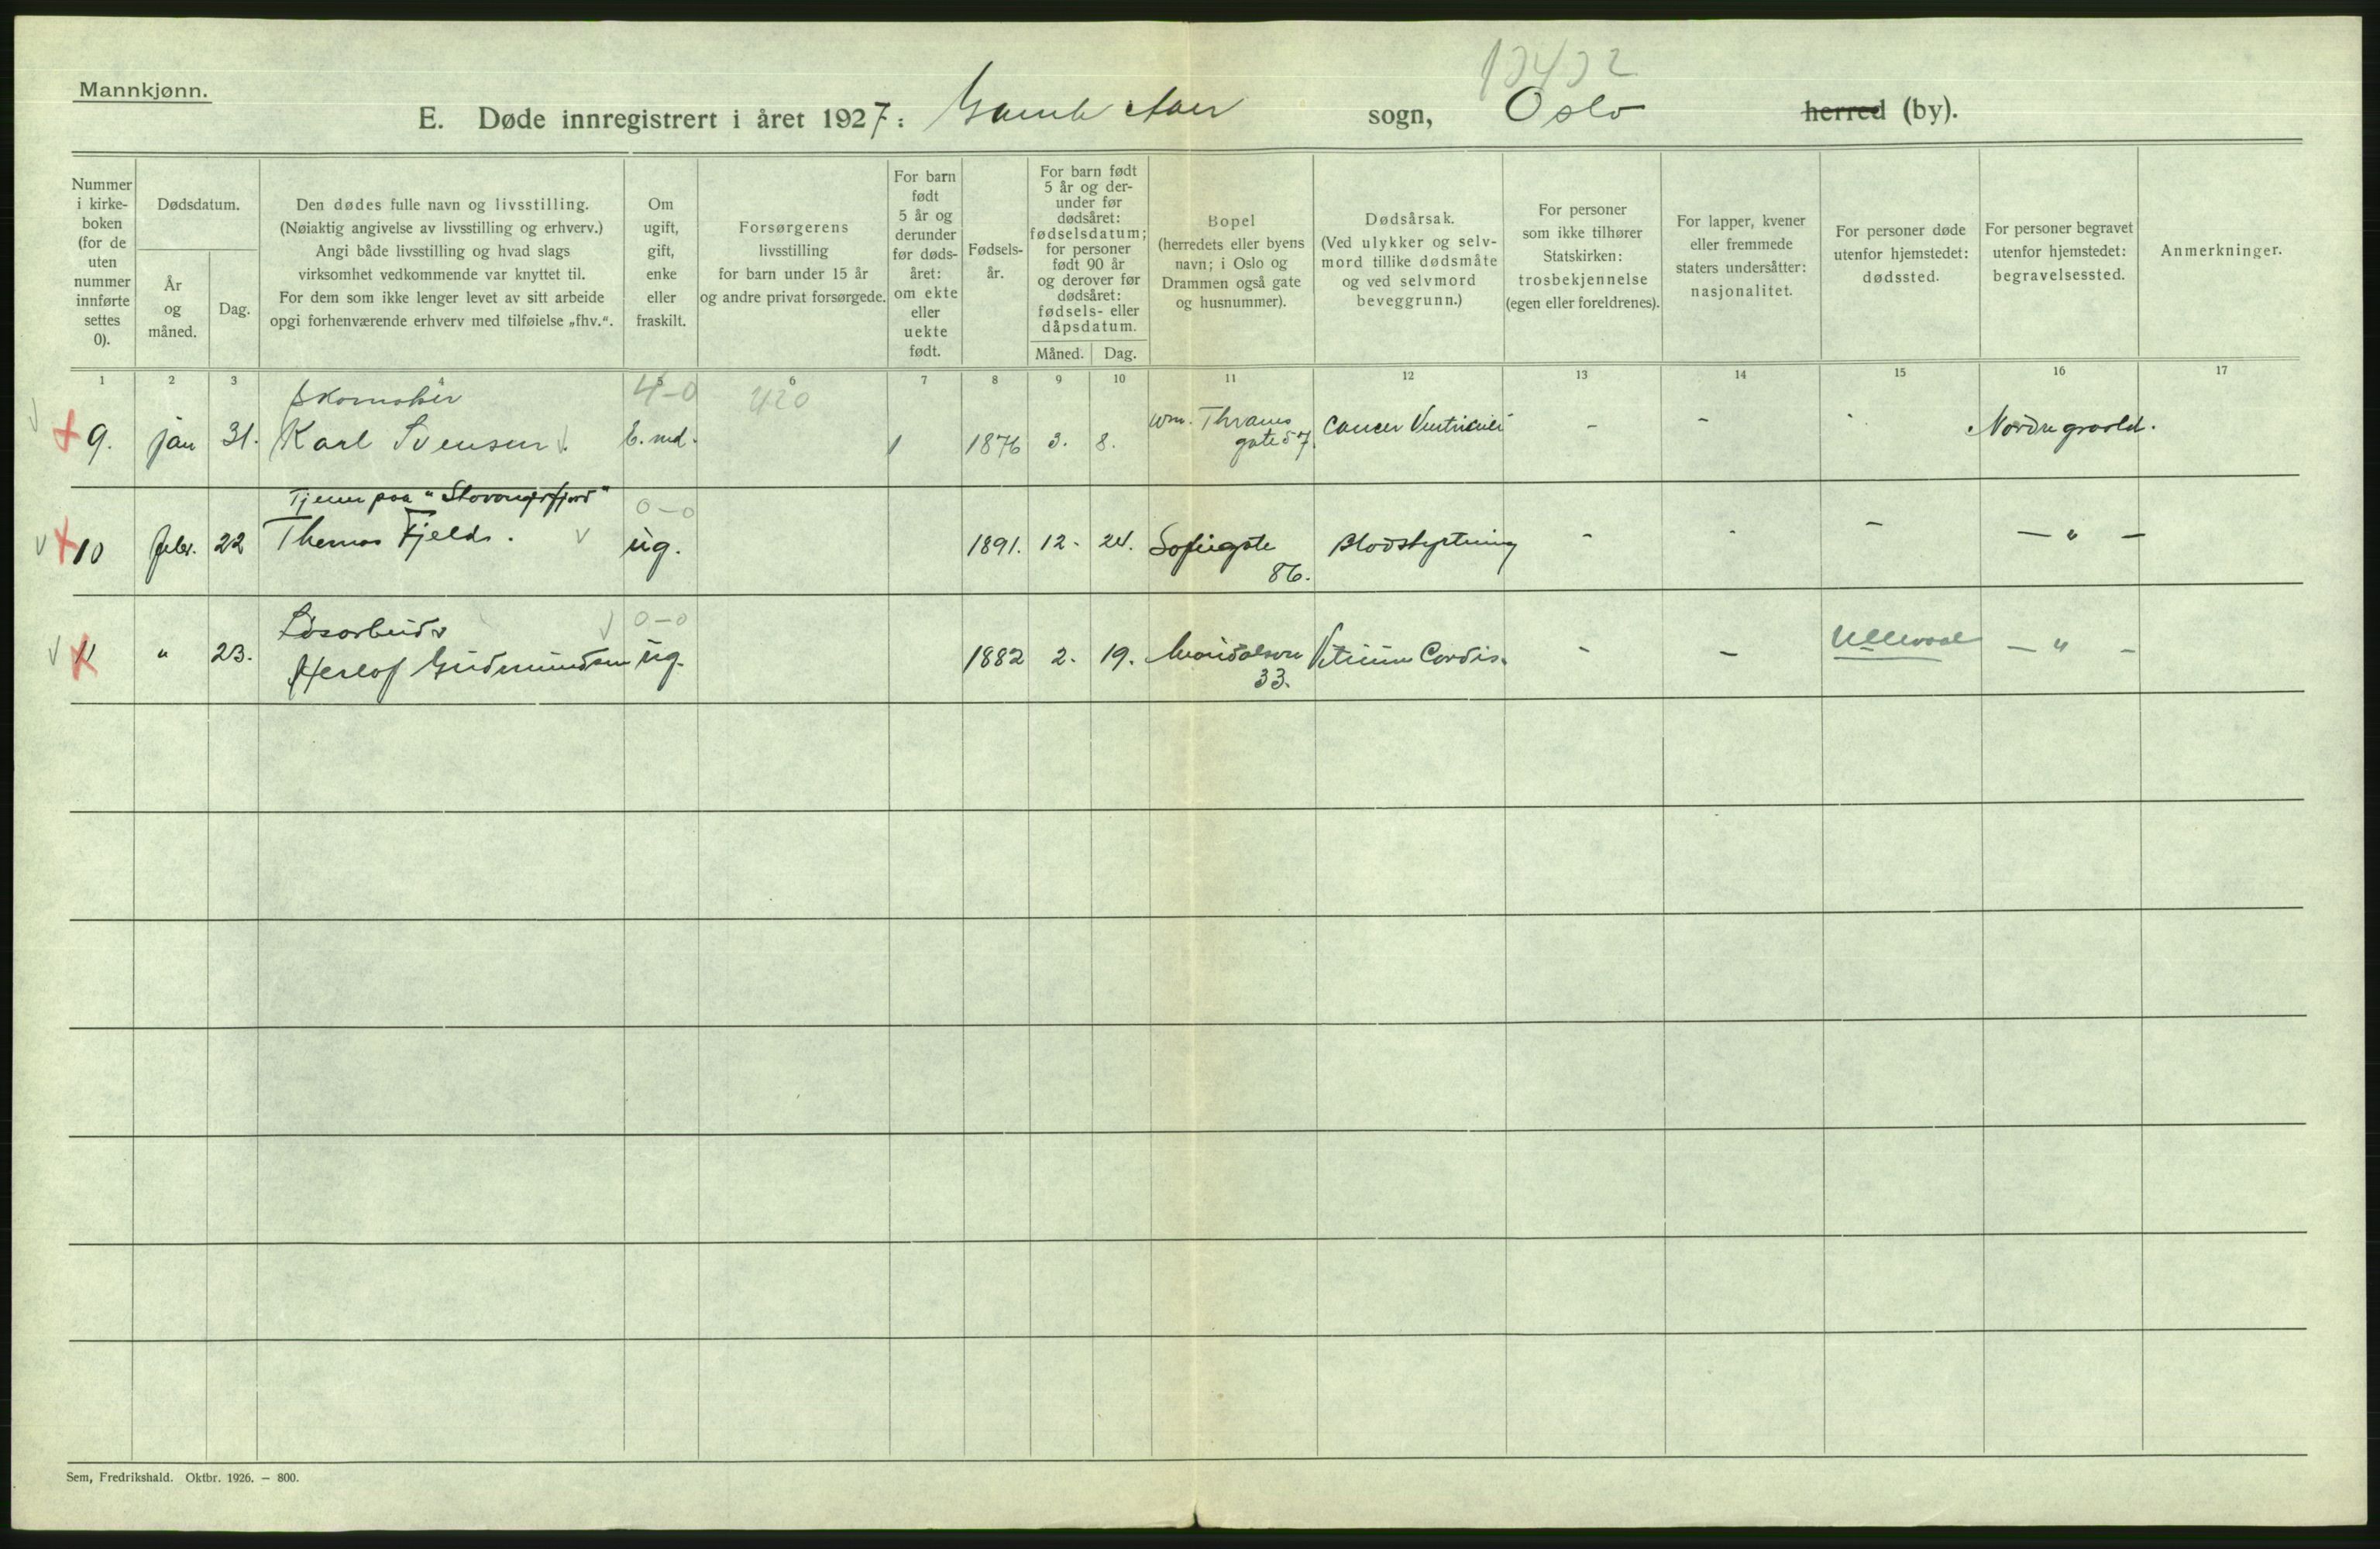 Mannkjønn.
E. Døde innregistrert i året 1927: Gamle Aker sogn, Oslo herred (by).
Nummer i kirke-boken (for de uten nummer innførte settes 0).
Dødsdatum.
År og måned.
Dag.
Den dødes fulle navn og livsstilling.
(Nøiaktig angivelse av livsstilling og erhverv.)
Angi både livsstilling og hvad slags
virksomhet vedkommende var knyttet til.
For dem som ikke lenger levet av sitt arbeide
opgi forhenværende erhverv med tilføielse „fhv.“.
Om ugift, gift, enke eller fraskilt.
Forsørgerens
livsstilling
for barn under 15 år
og andre privat forsørgede.
For barn født 5 år og derunder før døds-året: om ekte eller uekte født.
Fødsels-år.
For barn født 5 år og der-under før dødsåret: fødselsdatum; for personer født 90 år og derover før dødsåret: fødsels- eller dåpsdatum.
Måned. Dag.
Bopel
(herredets eller byens
navn; i Oslo og
Drammen også gate
og husnummer).
Dødsårsak.
(Ved ulykker og selv-
mord tillike dødsmåte
og ved selvmord
beveggrunn.)
For personer
som ikke tilhører
Statskirken:
trosbekjennelse
(egen eller foreldrenes).
For lapper, kvener
eller fremmede
staters undersåtter:
nasjonalitet.
For personer døde
utenfor hjemstedet:
dødssted.
For personer begravet
utenfor hjemstedet:
begravelsessted.
Anmerkninger.
1 2 3 4 5 6 7 8 9 10 11 12 13 14 15 16 17
Skomaker 4-0 420
9. jan 31. Karl Svensen E. md. 1 1876 3. 8. Wm. Thranes gate 57. Cancer Ventriculi - - Nordre gravld.
Tjener paa "Stavangerfjord" 0-0
10 febr. 22 Thomas Fjeld. ug. 1891. 12. 24. Sofiegate 86. Blodstyrtning - - - — " —
Løsarbeider 0-0
11 " 23. Herlof Gudmundsen ug. 1882 2. 19. 33. Vitium Cordis. - - Ullevaal — " —
Sem, Fredrikshald. Oktbr. 1926. — 800.